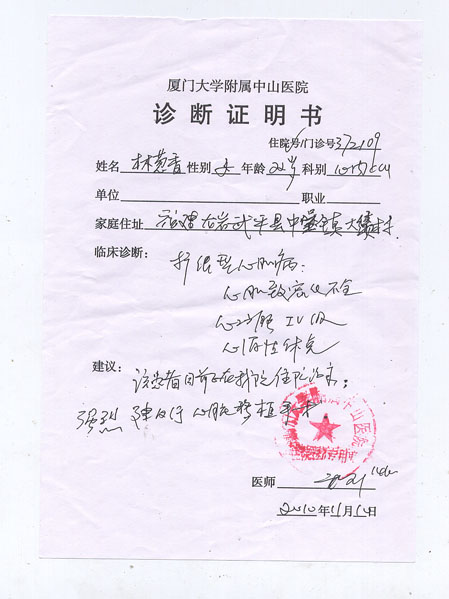 厦门大学附属中山医院
诊断证明书
住院号/门诊号372109
姓名 林 香 性别 女 年龄 22岁 科别 心内CCU
单位 职业
家庭住址 福建龙岩武平县中堡镇大绩村
临床诊断：
扩张型心肌病：
心肌致密化不全
心功能 IV级
心源性休克
建议：
该患者目前在我院住院治疗；
强烈建议行心脏移植手术
附属中山医院
医师
2010年11月10日